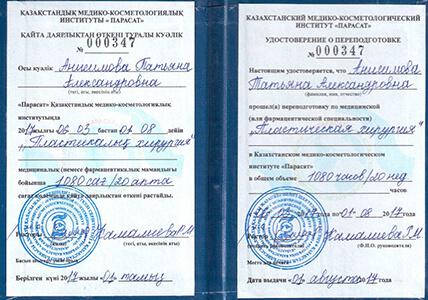 ҚАЗАҚСТАНДЫҚ МЕДИКО-КОСМЕТОЛОГИЯЛЫҚ
ИНСТИТУТЫ « ПАРАСАТ»
ҚАЙТА ДАЯРЛЫҚТАН ӨТКЕНІ ТУРАЛЫ КУӘЛІК
№ 000347
Осы куәлік Анисимова Татьяна
Александровна
(тегі, аты, әкесінің аты)
«Парасат» Қазақстандық медико-косметологиялық
институтында
2017 жылғы 06.03 бастап 01.08 дейін
"Пластикалық хирургия"
медициналық (немесе фармацевтикалық мамандығы
бойынша 1080 сағ/20 апта
сағат көлемінде қайта даярлықтан өткені растайды.
Ректоры Жамалиева Г.М
(қолы) (тегі, аты, әкесінің аты)
Басып шығару
Берілген күні 2017 жылы 01 тамыз
КАЗАХСТАНСКИЙ МЕДИКО-КОСМЕТОЛОГИЧЕСКИЙ
ИНСТИТУТ «ПАРАСАТ»
УДОСТОВЕРЕНИЕ О ПЕРЕПОДГОТОВКЕ
№ 000347
Настоящим удостоверяется, что Анисимова
Татьяна Александровна
(фамилия, имя, отчество)
прошел(а) переподготовку по медицинской
(или фармацевтической специальности)
"Пластическая хирургия"
в Казахстанском медико-косметологическом
институте «Парасат»
в общем объеме 1080 часов/20 нед
часов
2017 01-08 2017 года
Жамалиева Г.М
(Ф.И.О. руководителя)
Место для печати
Дата выдачи «01 августа 2017